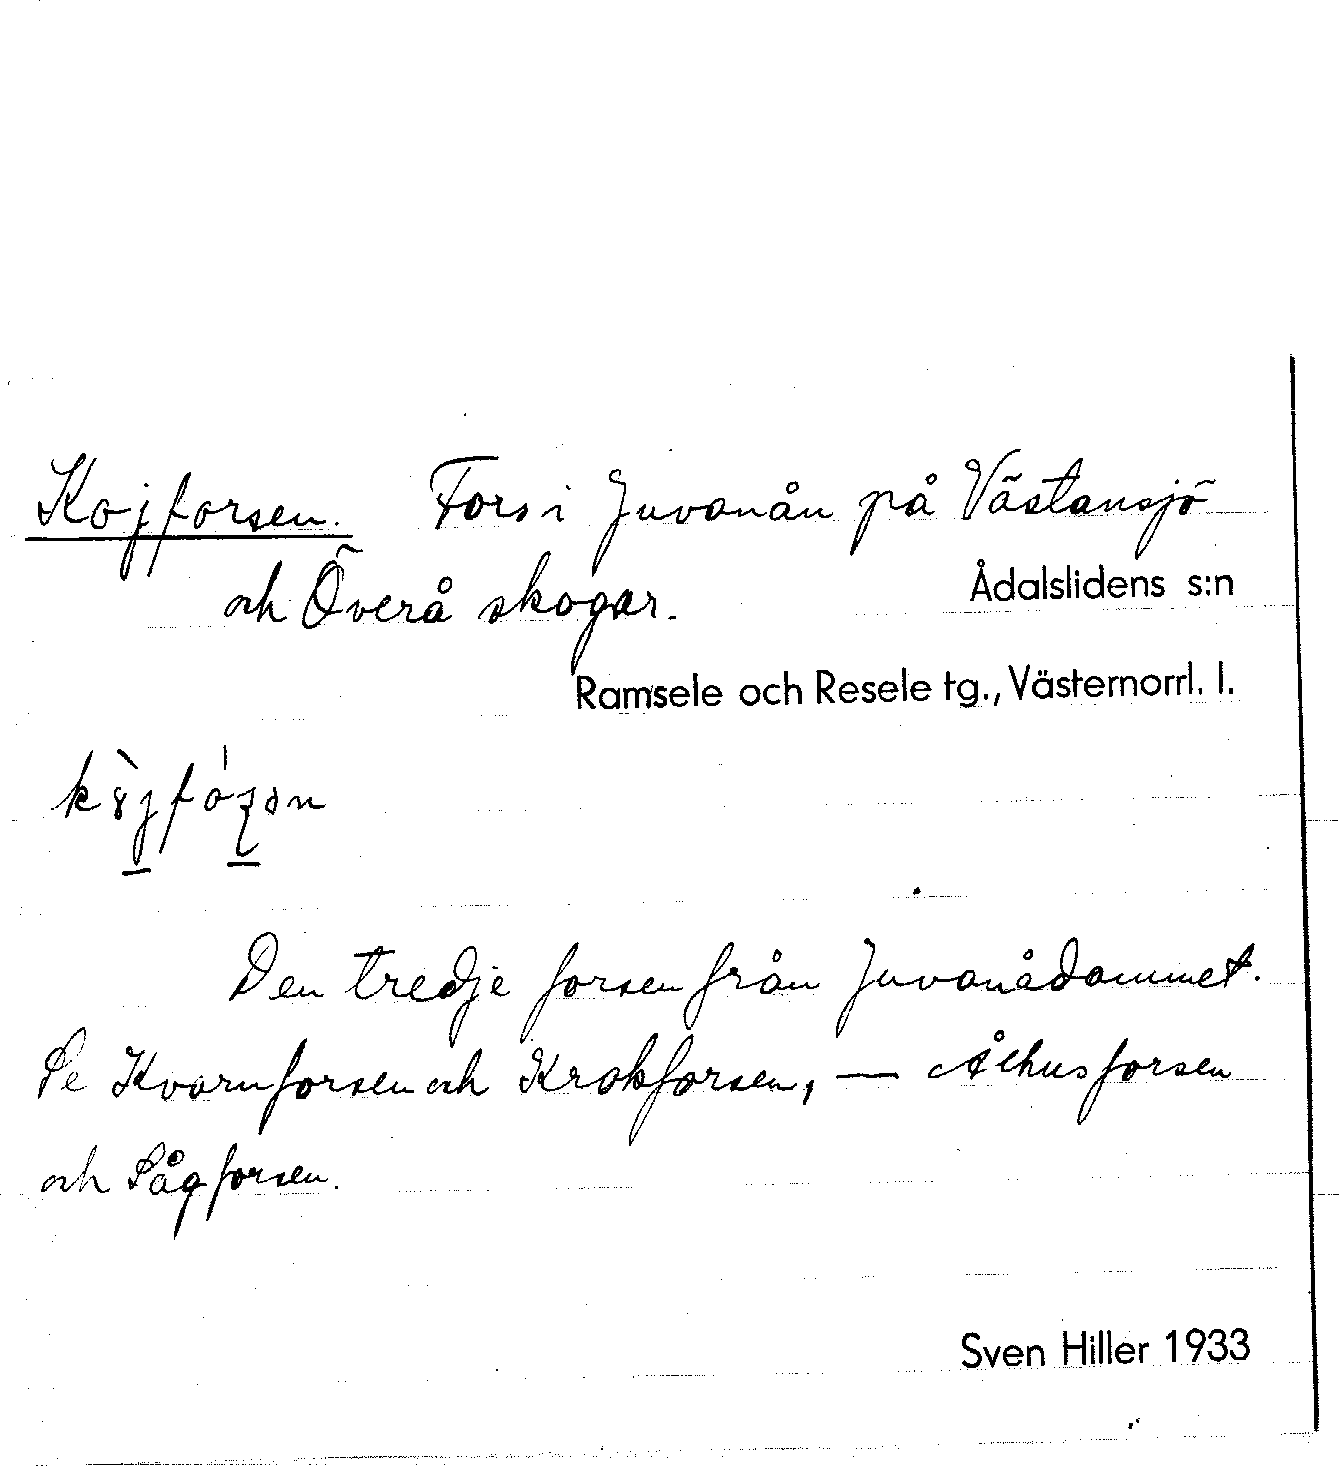 Kojforsen. Fors i Juvanån på Västansjö
och Överå skogar.
Ådalslidens s:n
Ramsele och Resele tg., Västernorrl. l.
Den tredje forsen från Juvanådammet.
Se Kvarnforsen och Krokforsen, — Ålhusforsen
och Sågforsen.
Sven Hiller 1933